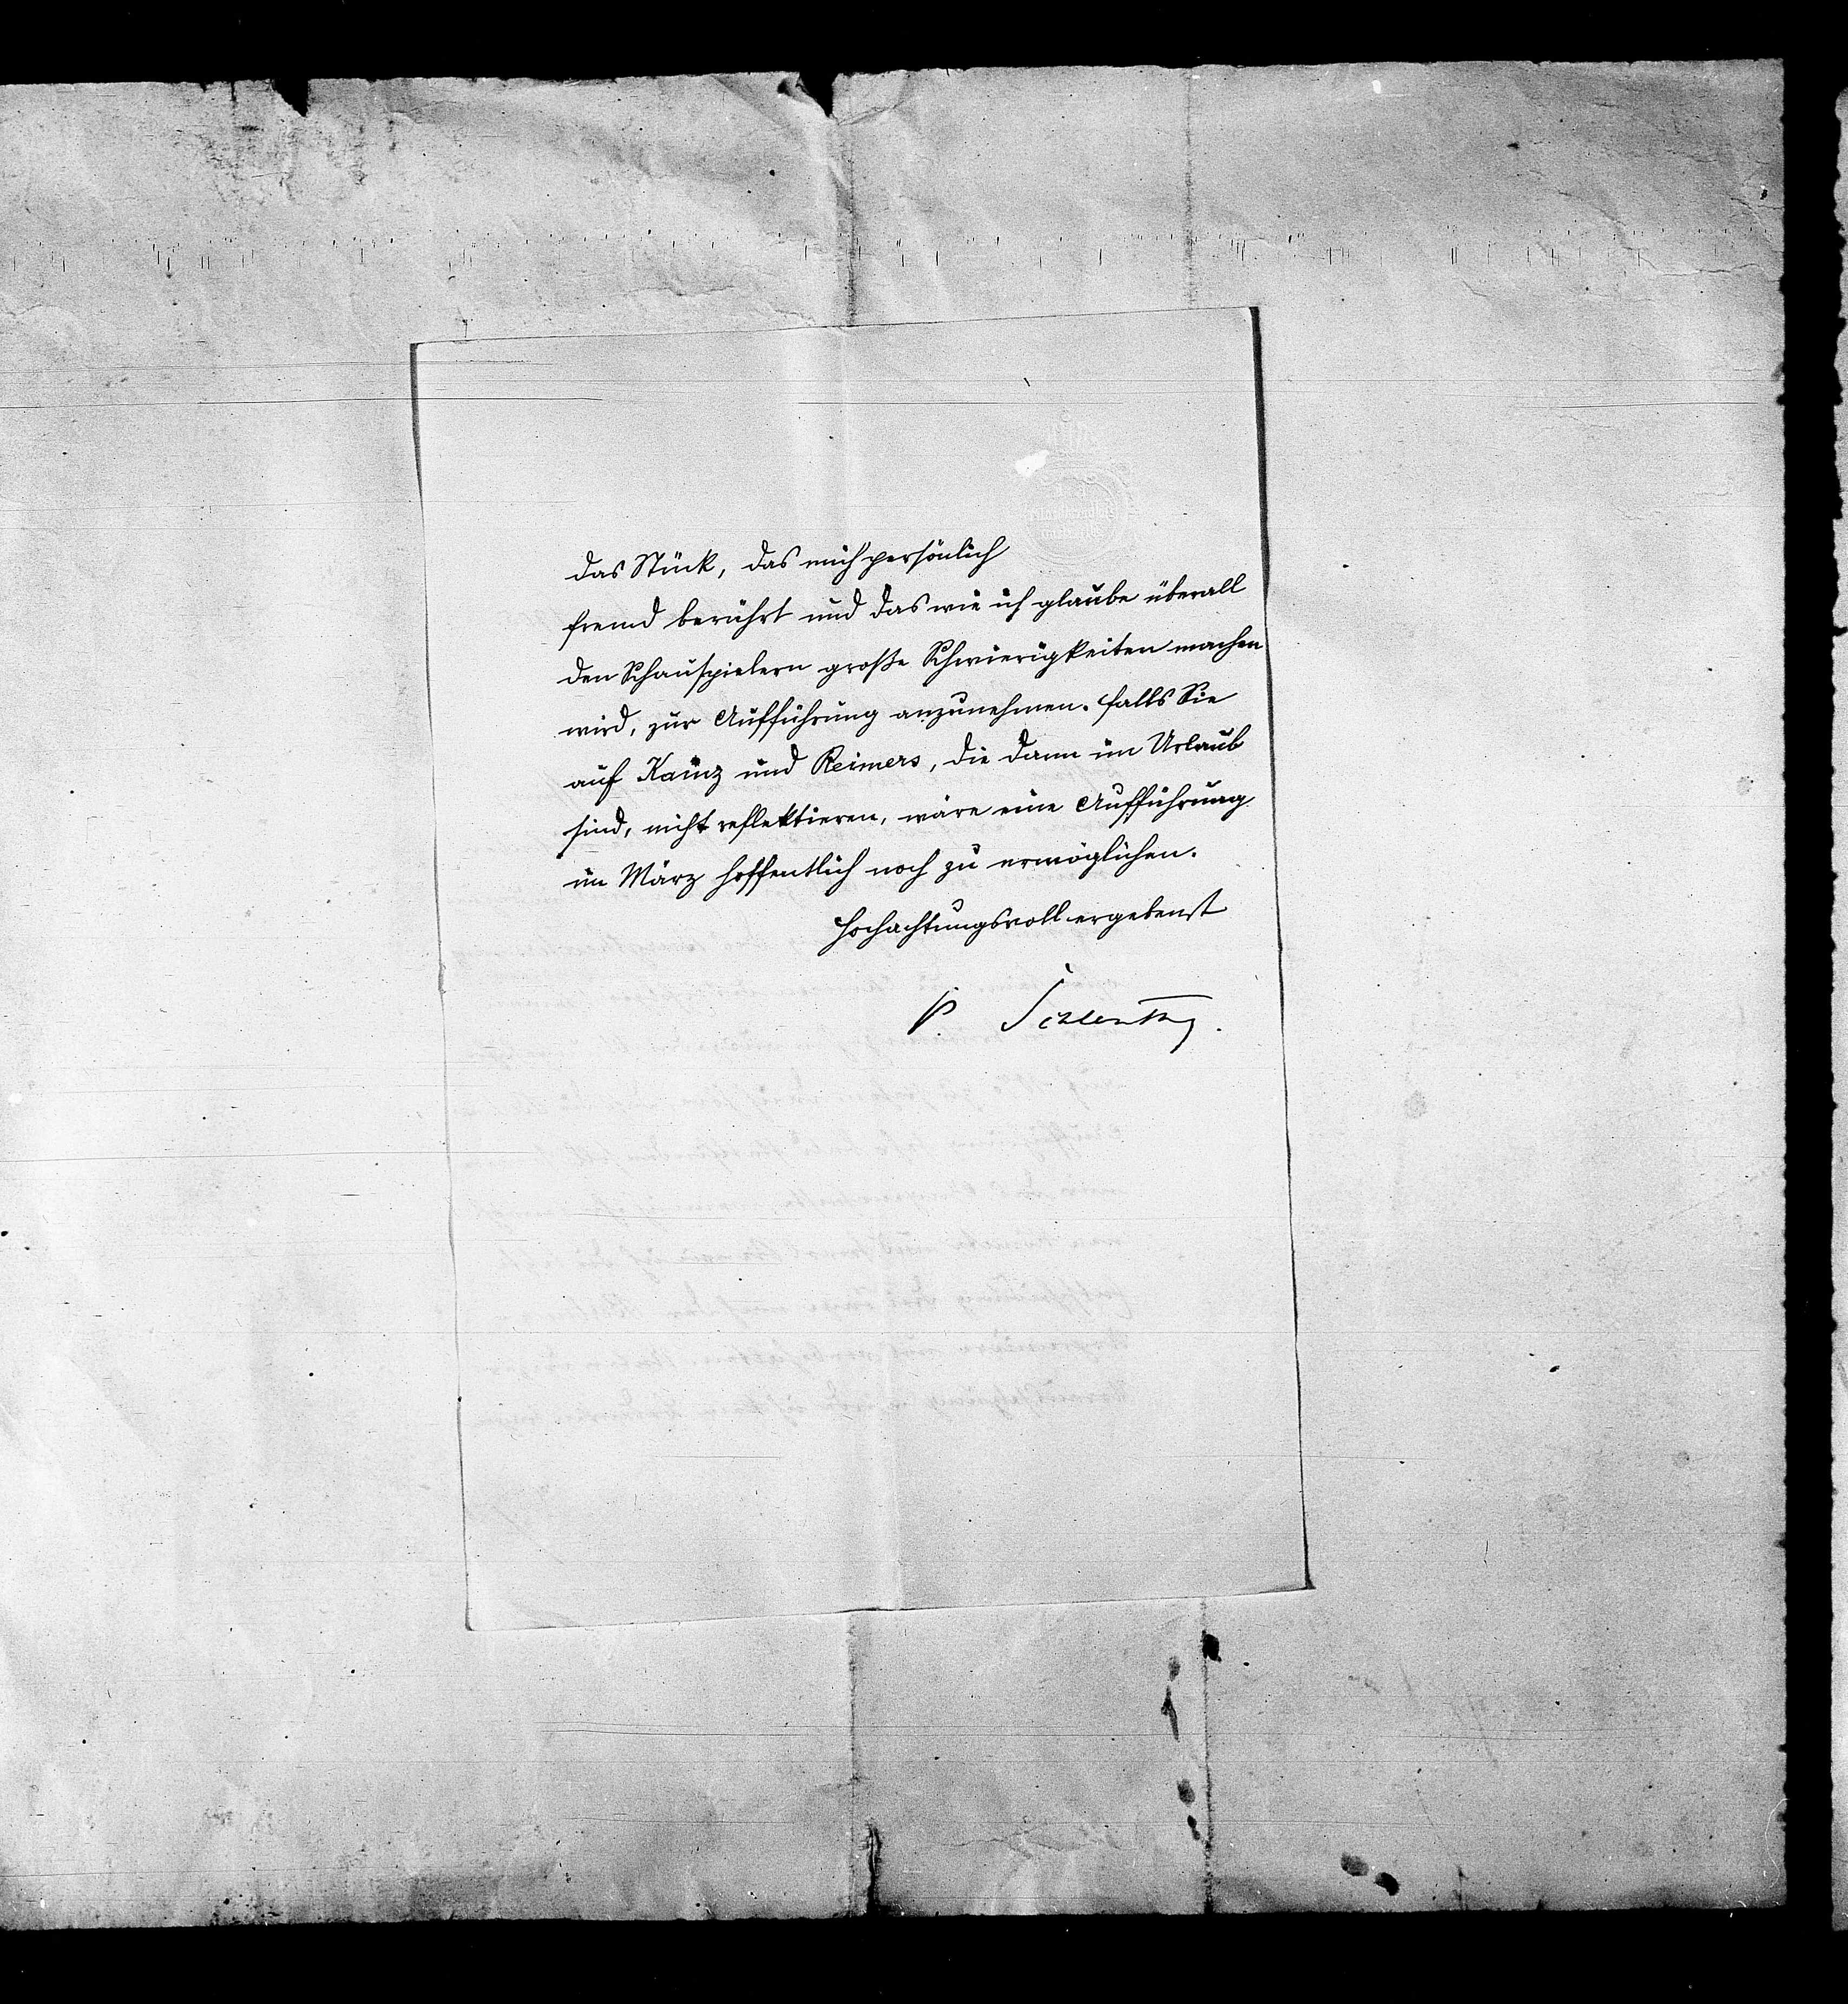 das Stück, das mich persönlich
fremd berührt und das wie ich glaube überall
den Schauspielern große Schwierigkeiten machen
wird, zur Aufführung anzunehmen. Falls Sie
auf Kainz und Reimers, die dann im Urlaub
sind, nicht reflektieren, wäre eine Aufführung
im März hoffentlich noch zu ermöglichen.
Hochachtungsvoll ergebenst
P. Schlenther.